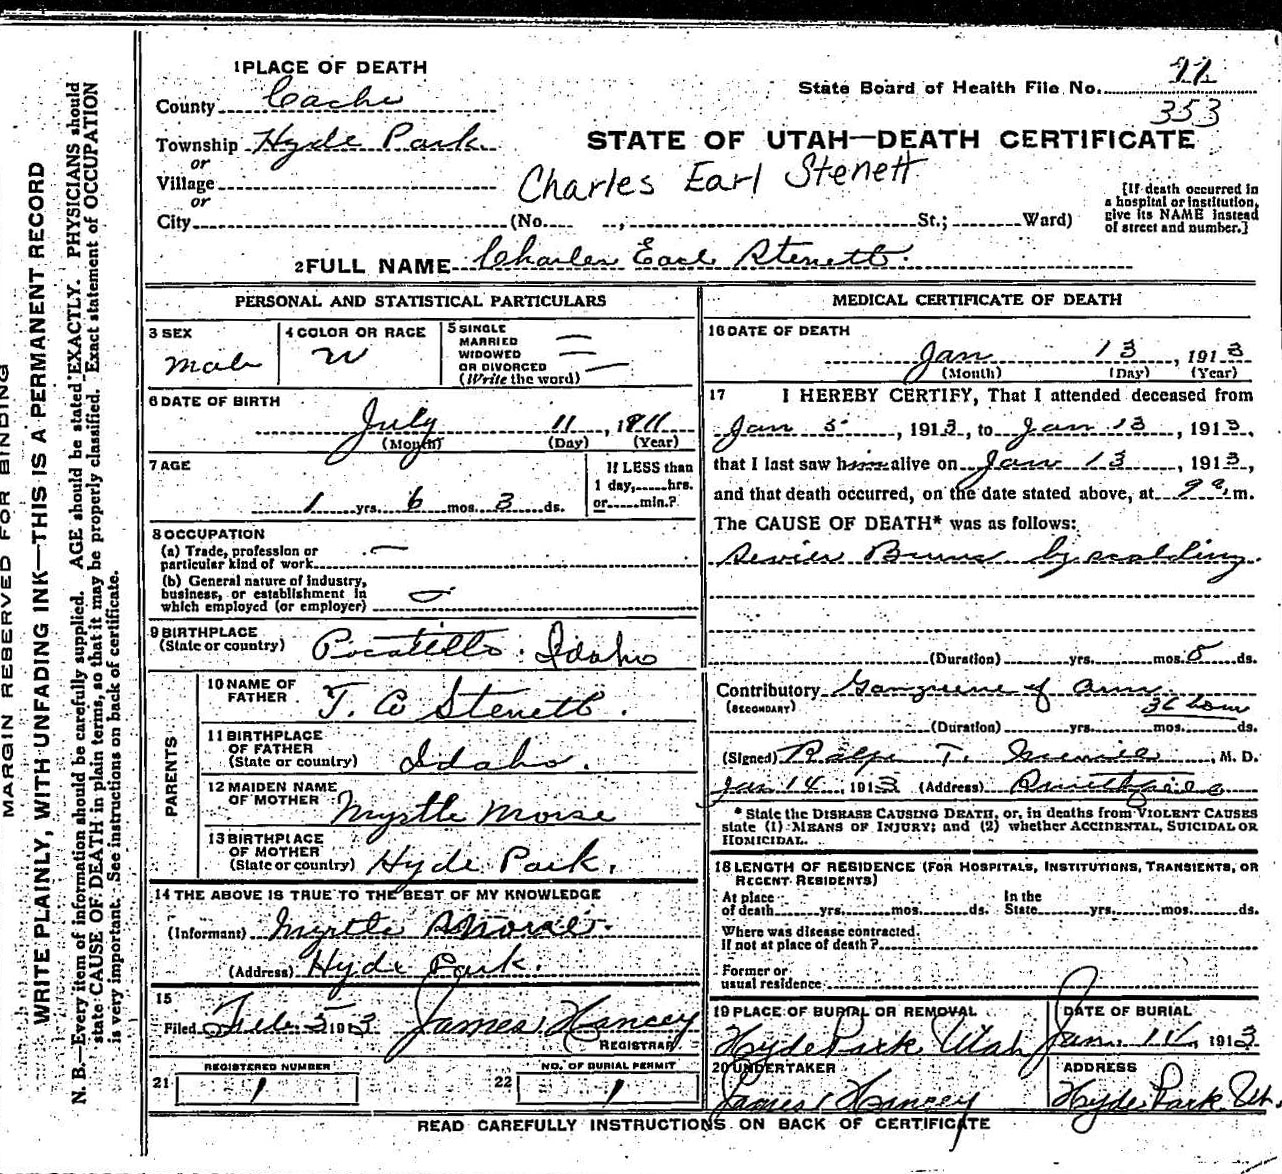 MARGIN RESERVED FOR BINDING
WRITE PLAINLY, WITH UNFADING INK—THIS IS A PERMANENT RECORD
N. B.—Every item of information should be carefully supplied. AGE should be stated EXACTLY. PHYSICIANS should
state CAUSE OF DEATH in plain terms, so that it may be properly classified. Exact statement of OCCUPATION
is very important. See instructions on back of certificate.
1 PLACE OF DEATH
County Cache
State Board of Health File No. 11
353
Township Hyde Park
or
Village
or
City (No. , St.; Ward)
STATE OF UTAH—DEATH CERTIFICATE
Charles Earl Stenett
[If death occurred in
a hospital or institution,
give its NAME instead
of street and number.]
2 FULL NAME Charles Earl Stenett.
PERSONAL AND STATISTICAL PARTICULARS
3 SEX
Male
4 COLOR OR RACE
W
5 SINGLE
MARRIED
WIDOWED
OR DIVORCED
(Write the word)
6 DATE OF BIRTH
July 11, 1911
(Month) (Day) (Year)
7 AGE
1 yrs. 6 mos. 3 ds.
If LESS than
1 day, hrs.
or min.?
8 OCCUPATION
(a) Trade, profession or
particular kind of work
(b) General nature of industry,
business, or establishment in
which employed (or employer)
9 BIRTHPLACE
(State or country) Pocatello. Idaho
PARENTS
10 NAME OF
FATHER T. W Stenett.
11 BIRTHPLACE
OF FATHER
(State or country) Idaho.
12 MAIDEN NAME
OF MOTHER Myrtle Morse
13 BIRTHPLACE
OF MOTHER
(State or country) Hyde Park.
14 THE ABOVE IS TRUE TO THE BEST OF MY KNOWLEDGE
(Informant) Myrtle
(Address) Hyde Park.
15
Filed Feb. 5 1913 James Hancey
REGISTRAR
REGISTERED NUMBER
21 1
NO. OF BURIAL PERMIT
22 1
MEDICAL CERTIFICATE OF DEATH
16 DATE OF DEATH
Jan 13, 1913
(Month) (Day) (Year)
17 I HEREBY CERTIFY, That I attended deceased from
Jan 5, 1913, to Jan 13, 1913,
that I last saw him alive on Jan 13, 1913,
and that death occurred, on the date stated above, at 9 a.m.
The CAUSE OF DEATH* was as follows:
Sevier Burns by scalding.
(Duration) yrs. mos. 8 ds.
Contributory Gangrene of arm
(SECONDARY) 36 hours
(Duration) yrs. mos. ds.
(Signed) Ralph T. , M. D.
Jan 14, 1913 (Address) Smithfield
* State the DISEASE CAUSING DEATH, or, in deaths from VIOLENT CAUSES
state (1) MEANS OF INJURY; and (2) whether ACCIDENTAL, SUICIDAL OR
HOMICIDAL.
18 LENGTH OF RESIDENCE (FOR HOSPITALS, INSTITUTIONS, TRANSIENTS, OR
RECENT RESIDENTS)
At place In the
of death yrs. mos. ds. State yrs. mos. ds.
Where was disease contracted
If not at place of death?
Former or
usual residence
19 PLACE OF BURIAL OR REMOVAL
Hyde Park Utah
DATE OF BURIAL
Jan. 1913
20 UNDERTAKER
James Hancey
ADDRESS
Hyde Park Ut.
READ CAREFULLY INSTRUCTIONS ON BACK OF CERTIFICATE